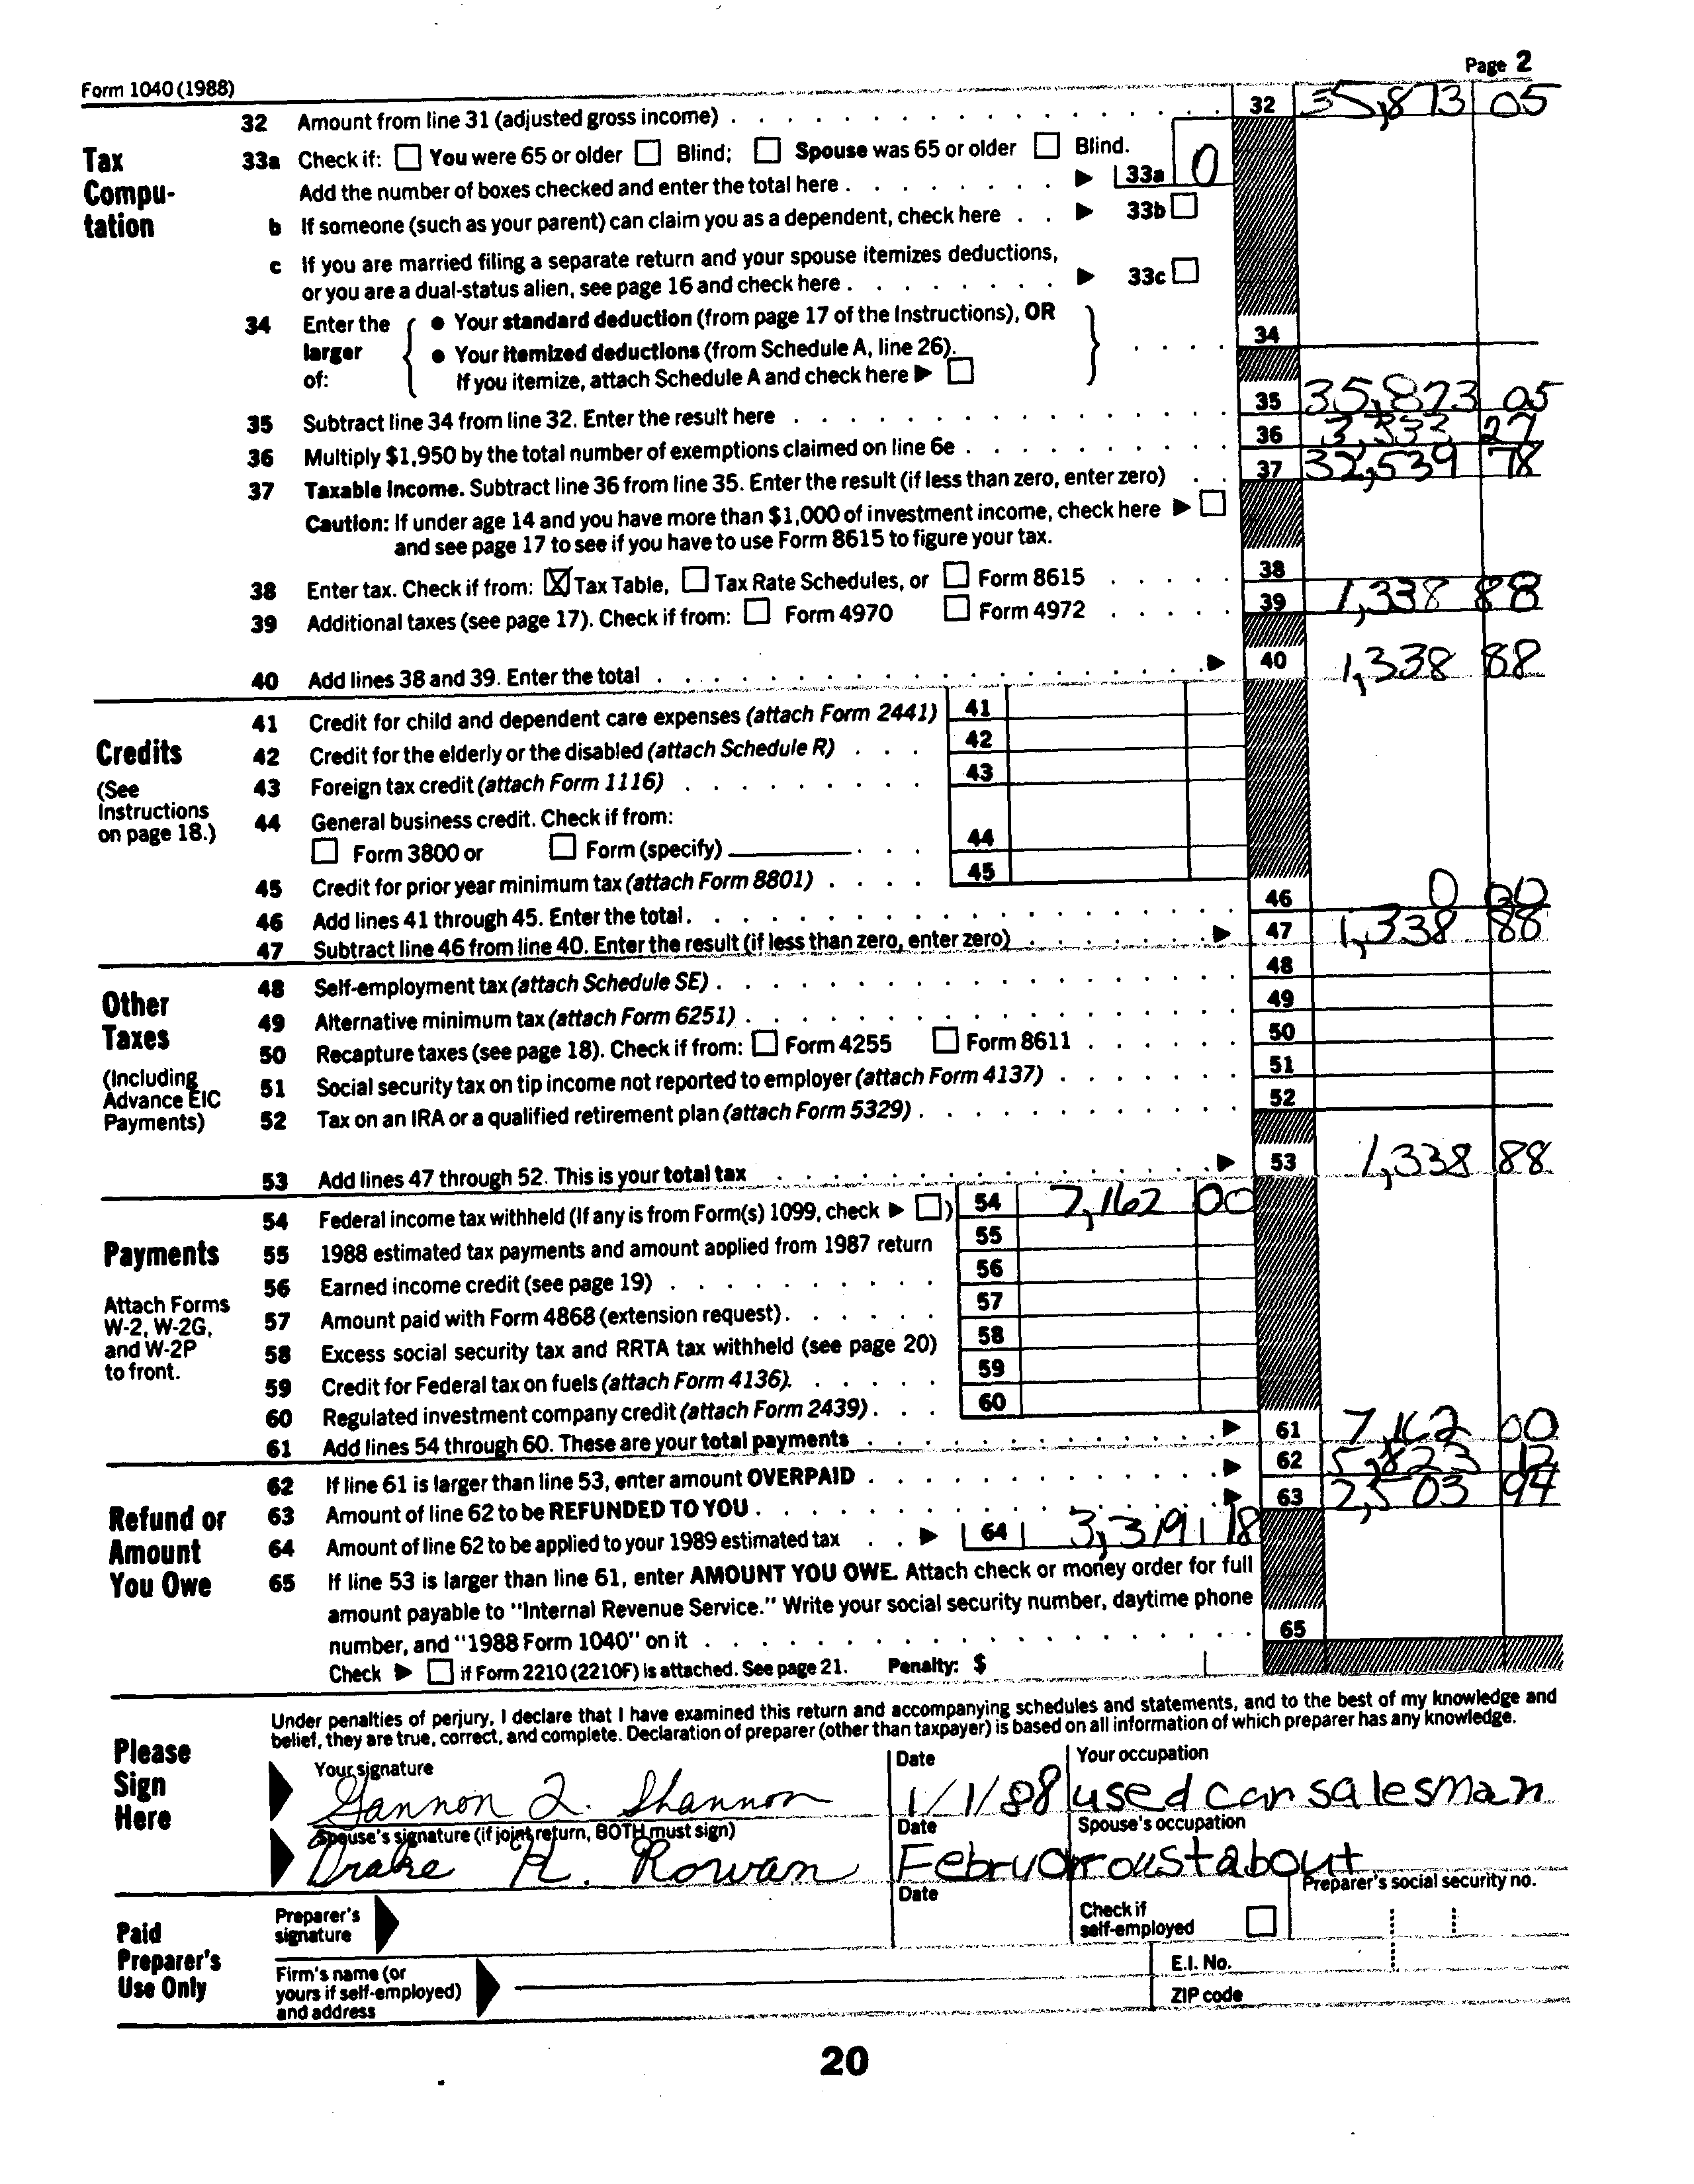 Page 2
Form 1040 (1988)
32 Amount from line 31 (adjusted gross income) 32 35,873 05
Tax Compu-tation
33a Check if: You were 65 or older Blind; Spouse was 65 or older Blind.
Add the number of boxes checked and enter the total here 33a 0
b If someone (such as your parent) can claim you as a dependent, check here 33b
c If you are married filing a separate return and your spouse itemizes deductions,
or you are a dual-status alien, see page 16 and check here 33c
34 Enter the larger of:
• Your standard deduction (from page 17 of the Instructions), OR
• Your itemized deductions (from Schedule A, line 26). 34
If you itemize, attach Schedule A and check here
35 Subtract line 34 from line 32. Enter the result here 35 35,873 05
36 Multiply $1,950 by the total number of exemptions claimed on line 6e 36 3,333 27
37 Taxable income. Subtract line 36 from line 35. Enter the result (if less than zero, enter zero) 37 32,539 78
Caution: If under age 14 and you have more than $1,000 of investment income, check here
and see page 17 to see if you have to use Form 8615 to figure your tax.
38 Enter tax. Check if from: X Tax Table, Tax Rate Schedules, or Form 8615 38
39 Additional taxes (see page 17). Check if from: Form 4970 Form 4972 39 1,338 88
40 Add lines 38 and 39. Enter the total 40 1,338 88
Credits
(See Instructions on page 18.)
41 Credit for child and dependent care expenses (attach Form 2441) 41
42 Credit for the elderly or the disabled (attach Schedule R) 42
43 Foreign tax credit (attach Form 1116) 43
44 General business credit. Check if from:
Form 3800 or Form (specify) 44
45 Credit for prior year minimum tax (attach Form 8801) 45
46 Add lines 41 through 45. Enter the total. 46 0 00
47 Subtract line 46 from line 40. Enter the result (if less than zero, enter zero) 47 1,338 88
Other Taxes
(Including Advance EIC Payments)
48 Self-employment tax (attach Schedule SE) 48
49 Alternative minimum tax (attach Form 6251) 49
50 Recapture taxes (see page 18). Check if from: Form 4255 Form 8611 50
51 Social security tax on tip income not reported to employer (attach Form 4137) 51
52 Tax on an IRA or a qualified retirement plan (attach Form 5329) 52
53 Add lines 47 through 52. This is your total tax 53 1,338 88
Payments
Attach Forms W-2, W-2G, and W-2P to front.
54 Federal income tax withheld (If any is from Form(s) 1099, check ) 54 7,162 00
55 1988 estimated tax payments and amount applied from 1987 return 55
56 Earned income credit (see page 19) 56
57 Amount paid with Form 4868 (extension request) 57
58 Excess social security tax and RRTA tax withheld (see page 20) 58
59 Credit for Federal tax on fuels (attach Form 4136). 59
60 Regulated investment company credit (attach Form 2439) 60
61 Add lines 54 through 60. These are your total payments 61 7,162 00
62 If line 61 is larger than line 53, enter amount OVERPAID 62 5,823 12
Refund or Amount You Owe
63 Amount of line 62 to be REFUNDED TO YOU 63 2,503 94
64 Amount of line 62 to be applied to your 1989 estimated tax 64 3,319 18
65 If line 53 is larger than line 61, enter AMOUNT YOU OWE. Attach check or money order for full
amount payable to "Internal Revenue Service." Write your social security number, daytime phone
number, and "1988 Form 1040" on it 65
Check if Form 2210 (2210F) is attached. See page 21. Penalty: $
Under penalties of perjury, I declare that I have examined this return and accompanying schedules and statements, and to the best of my knowledge and
belief, they are true, correct, and complete. Declaration of preparer (other than taxpayer) is based on all information of which preparer has any knowledge.
Please Sign Here
Your signature Date Your occupation
Gannon Q. Shannon 1/1/88 used car salesman
Spouse's signature (if joint return, BOTH must sign) Date Spouse's occupation
Drake H. Rowan Februar roustabout
Paid Preparer's Use Only
Preparer's signature Date Check if self-employed Preparer's social security no.
Firm's name (or yours if self-employed) and address E.I. No.
ZIP code
20